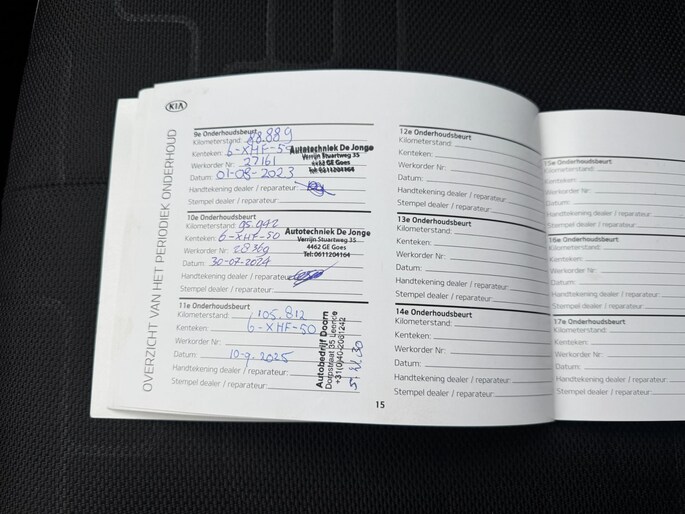 KIA
OVERZICHT VAN HET PERIODIEK ONDERHOUD
9e Onderhoudsbeurt
Kilometerstand: 88.889
Kenteken: 6-XHF-50
Werkorder Nr: 27161
Datum: 01-08-2023
Handtekening dealer / reparateur:
Stempel dealer / reparateur:
Autotechniek De Jonge
Verrijn Stuartweg 35
4462 GE Goes
Tel:0611204164
10e Onderhoudsbeurt
Kilometerstand: 95.942
Kenteken: 6-XHF-50
Werkorder Nr: 28369
Datum: 30-07-2024
Handtekening dealer / reparateur:
Stempel dealer / reparateur:
Autotechniek De Jonge
Verrijn Stuartweg 35
4462 GE Goes
Tel:0611204164
11e Onderhoudsbeurt
Kilometerstand: 105.812
Kenteken: 6-XHF-50
Werkorder Nr:
Datum: 10-9-2025
Handtekening dealer / reparateur:
Stempel dealer / reparateur:
Autobedrijf Doorn
Dorpstraat 35 Leende
+31(0)40-2061242
12e Onderhoudsbeurt
Kilometerstand:
Kenteken:
Werkorder Nr:
Datum:
Handtekening dealer / reparateur:
Stempel dealer / reparateur:
13e Onderhoudsbeurt
Kilometerstand:
Kenteken:
Werkorder Nr:
Datum:
Handtekening dealer / reparateur:
Stempel dealer / reparateur:
14e Onderhoudsbeurt
Kilometerstand:
Kenteken:
Werkorder Nr:
Datum:
Handtekening dealer / reparateur:
Stempel dealer / reparateur:
15
15e Onderhoudsbeurt
Kilometerstand:
Kenteken:
Werkorder Nr:
Datum:
Handtekening dealer / reparateur:
Stempel dealer / reparateur:
16e Onderhoudsbeurt
Kilometerstand:
Kenteken:
Werkorder Nr:
Datum:
Handtekening dealer / reparateur:
Stempel dealer / reparateur:
17e Onderhoudsbeurt
Kilometerstand:
Kenteken:
Werkorder Nr:
Datum:
Handtekening dealer / reparateur:
Stempel dealer / reparateur: